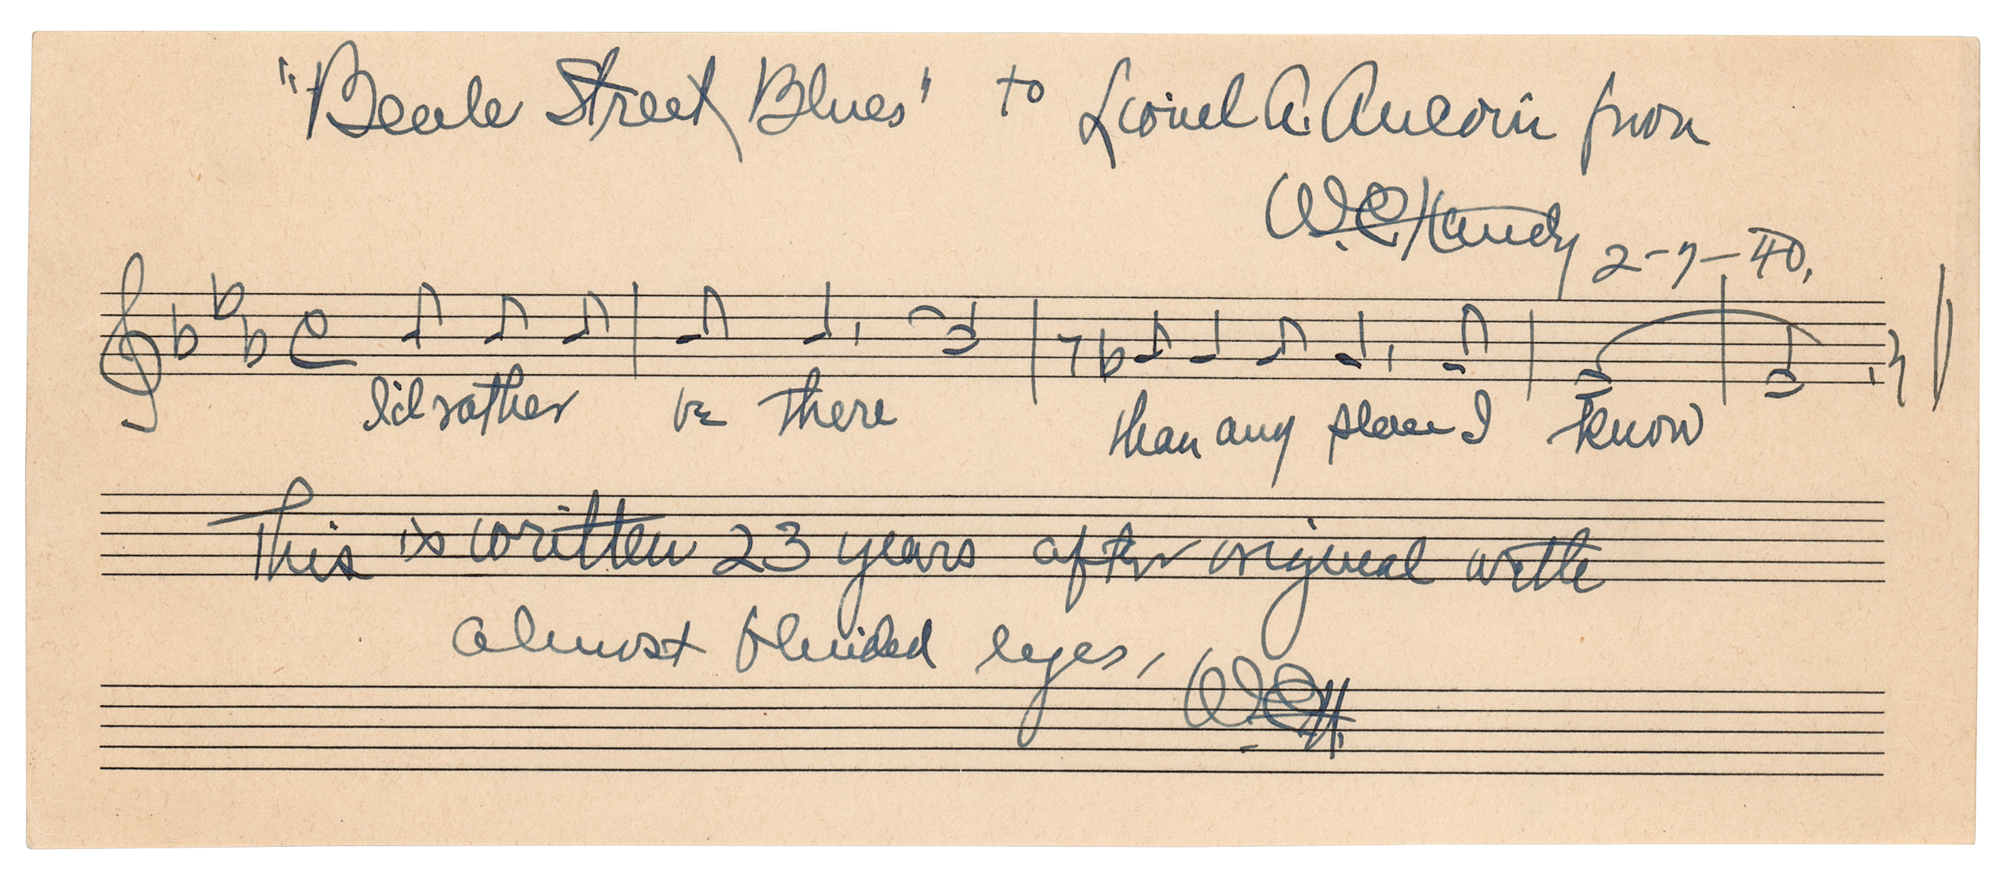 "Beale Street Blues" to Lionel A. Aucoin from
W.C. Handy 2-7-40.
I'd rather be there than any place I know
This is written 23 years after original with
almost blinded eyes, W.C.H.